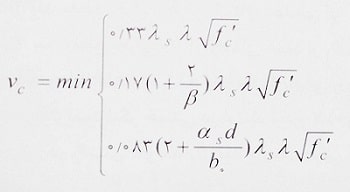 v_c = min {
۰/۳۳ λ_s λ √f_c′
۰/۱۷(۱ + ۲/β) λ_s λ √f_c′
۰/۰۸۳(۲ + α_s d/b_۰) λ_s λ √f_c′